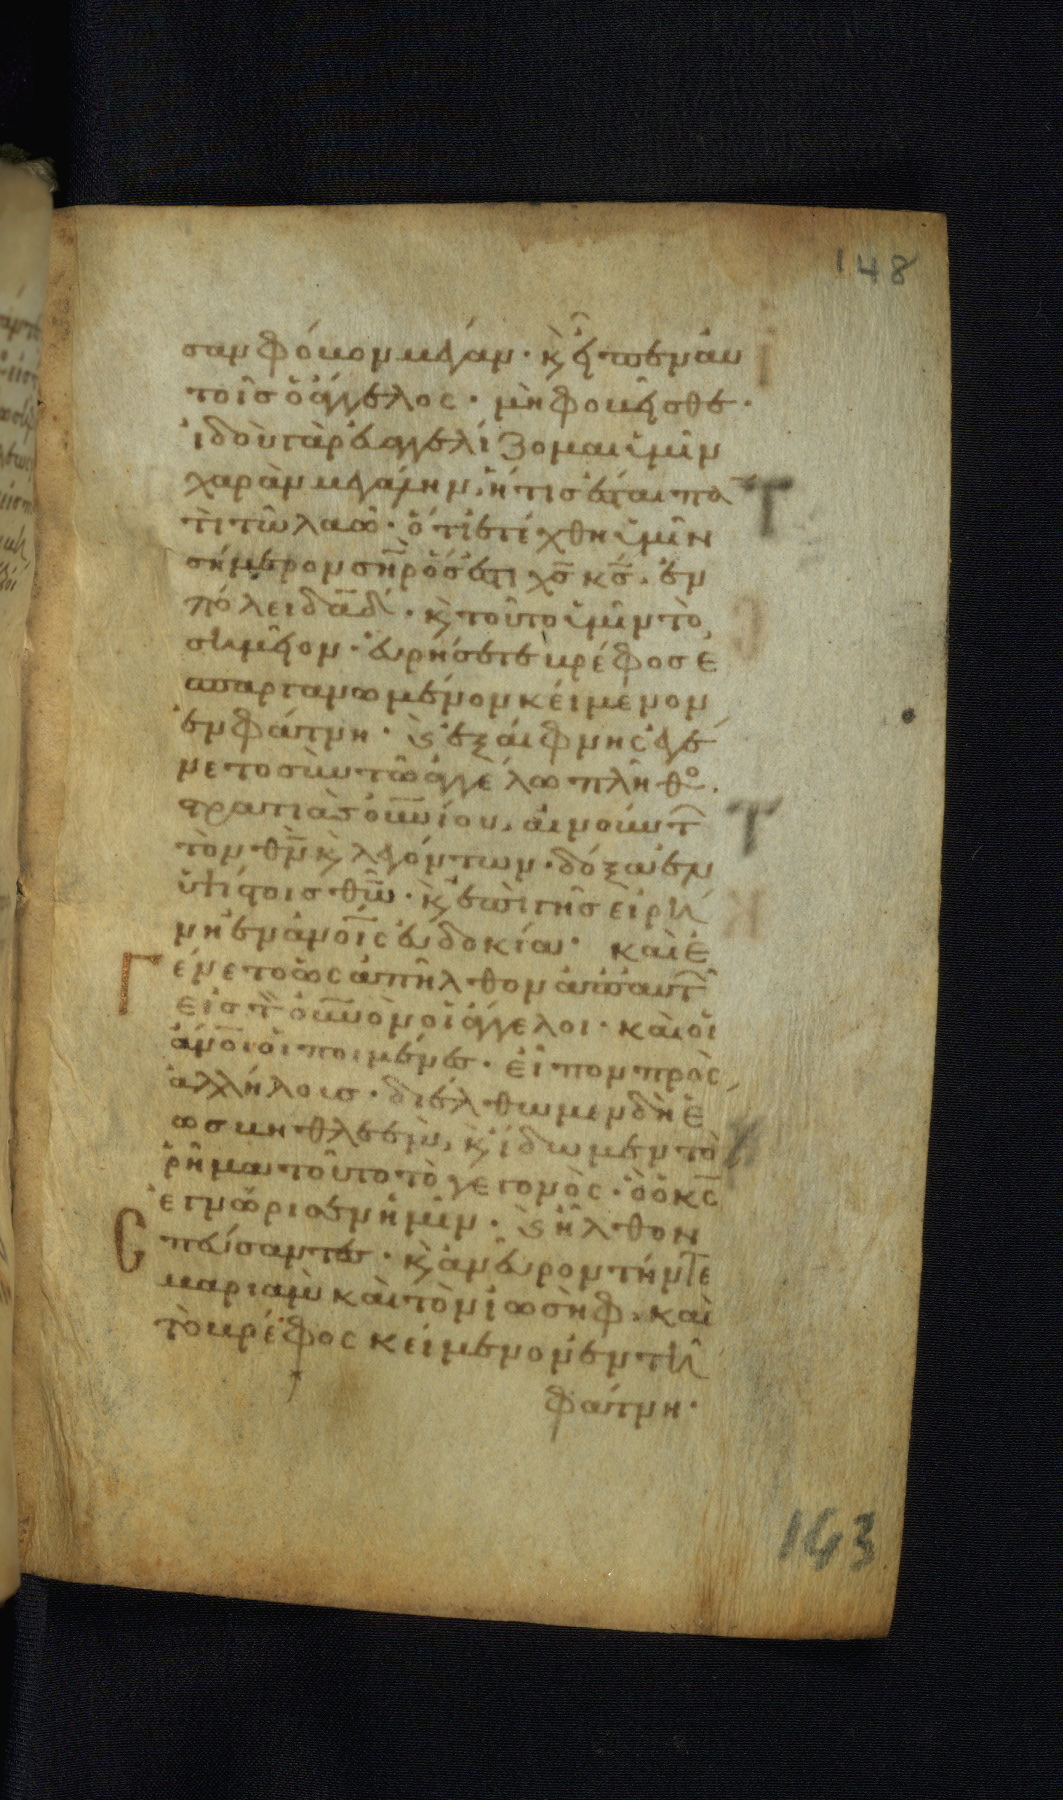 148
σαν φόβον μέγαν· κ̀ εἶπεν αυ
τοῖσ ὁ ἄγγελος· μὴ φοβεῖσθε·
ἰδοὺ γὰρ ἐυαγγελίζομαι ὑμῖν
χαρὰν μεγάλην, ἥτισ ἔσται πα
τὶ τῶ λαῶ· ὅτι ἐτέχθη ὑμῖν
σήμερον σηρ ὅς ἐστι χσ κσ, ἐν
πόλει δαδ· κ̀ τοῦτο ὑμῖν τὸ
σημεῖον· εὑρήσετε βρέφοσ ε
σπαργανωμένον κείμενον
ἐν φάτνη· κ̀ ἐξαίφνης ἐγέ
νετο σὺν τῶ ἀγγέλω πλῆθο
στρατιᾶσ οὐνίου, αἰνούντ
τὸν θν κ̀ λεγόντων· δόξα ἐν
ὑψίστοισ θω· κ̀ ἐπὶ γῆσ εἰρή
νη ἐν ἀνοις ἐυδοκία· καὶ ἐ
γένετο ὡς ἀπῆλθον ἀπ αὐτ
εἰσ τ οὐνον οἱ ἄγγελοι· καὶ οἱ
ἄνοι οἱ ποιμένες· εἶπον πρὸς
ἀλλήλουσ· διέλθωμεν δὴ ἕ
ωσ βηθλεὲμ, κ̀ ἴδωμεν τὸ
ῥῆμα τοῦτο τὸ γεγονὸς· ὃ ὁ κς
ἐγνώρισεν ἡμῖν· κ̀ ἦλθον
σπεύσαντες· κ̀ ἀνεῦρον τήν τε
μαριὰμ καὶ τὸν ἰωσὴφ, καὶ
τὸ βρέφος κείμενον ἐν τῆ
φάτνη·
143